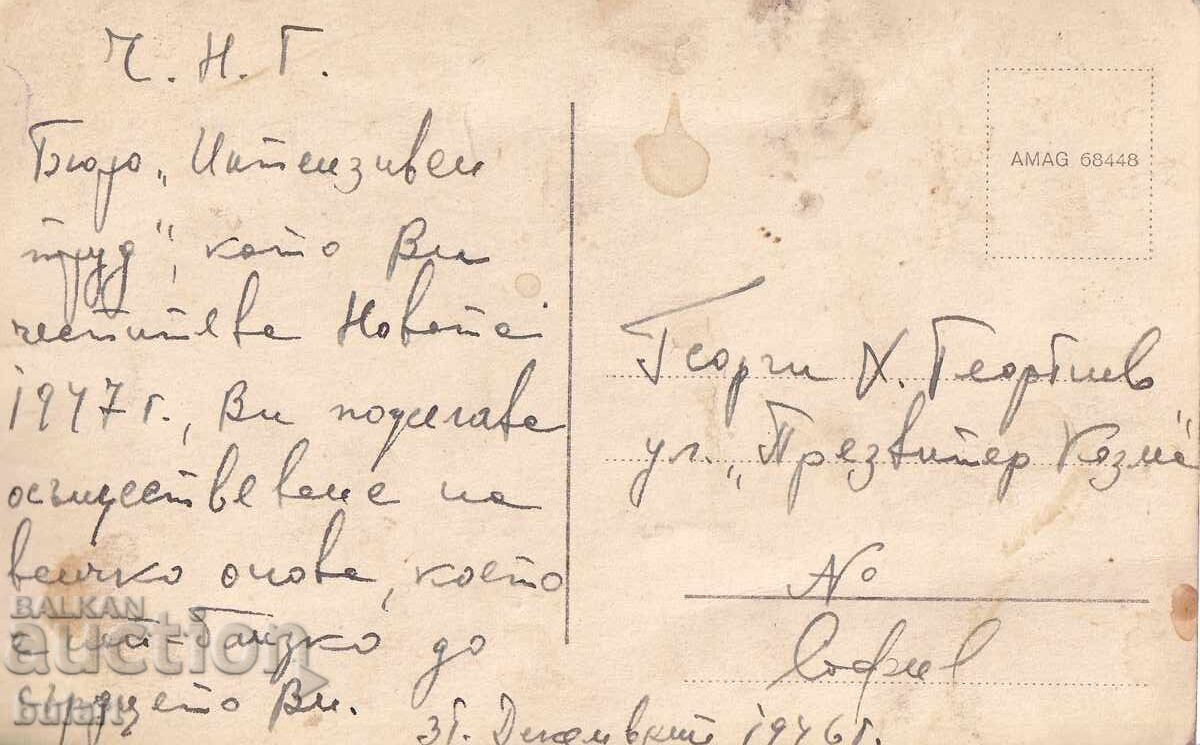 Ч. Н. Г.
Бюро „Интензивен
труд", като Ви
честитява Новата
1947 г., Ви пожелава
осъществяване на
всичко онова, което
е най-близко до
сърцето Ви.
31. Декемврий 1946 г.
AMAG 68448
Георги Х. Георгиев
ул. „Презвитер Козма
№
София
BALKAN
auction